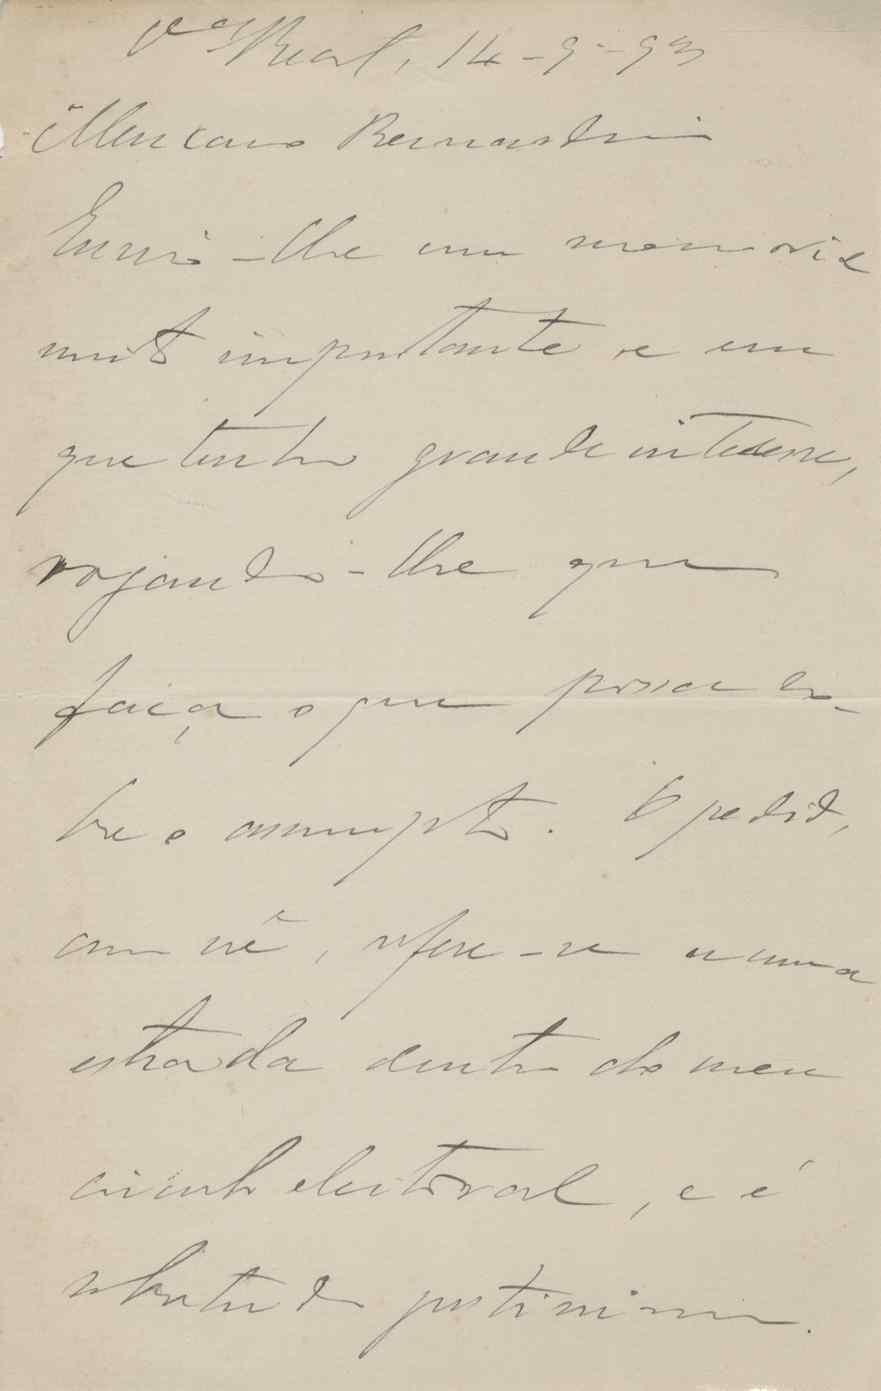 Vª Real, 14-9-93
Meu caro Bernardino
Envio-lhe um memorial
muito importante e em
que tenho grande interesse,
rogando-lhe que
faça o que possa so-
bre o assumpto. O pedido,
como vê, refere-se a uma
estrada dentro do meu
circulo eleitoral, e é
sobretudo justissimo.